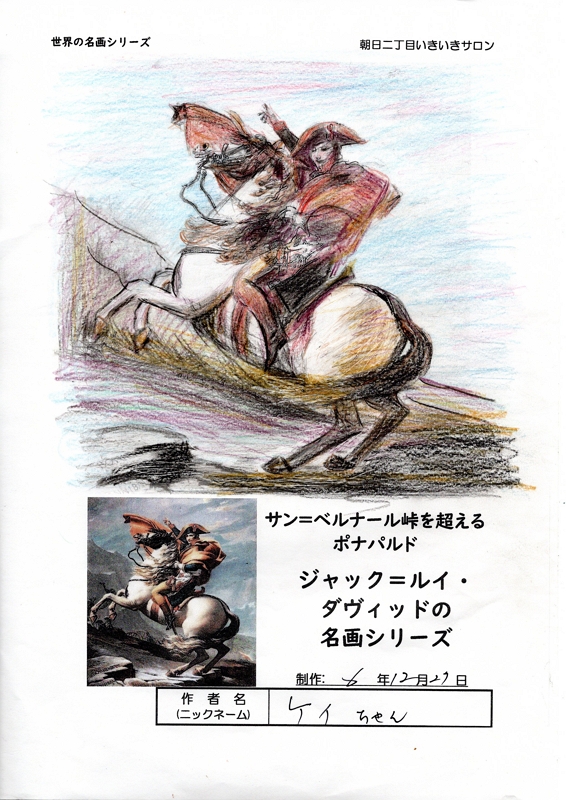 世界の名画シリーズ
朝日二丁目いきいきサロン
サン=ベルナール峠を超える
ボナパルド
ジャック=ルイ・
ダヴィッドの
名画シリーズ
制作: 6 年12月27日
作者名
(ニックネーム)
ケイちゃん